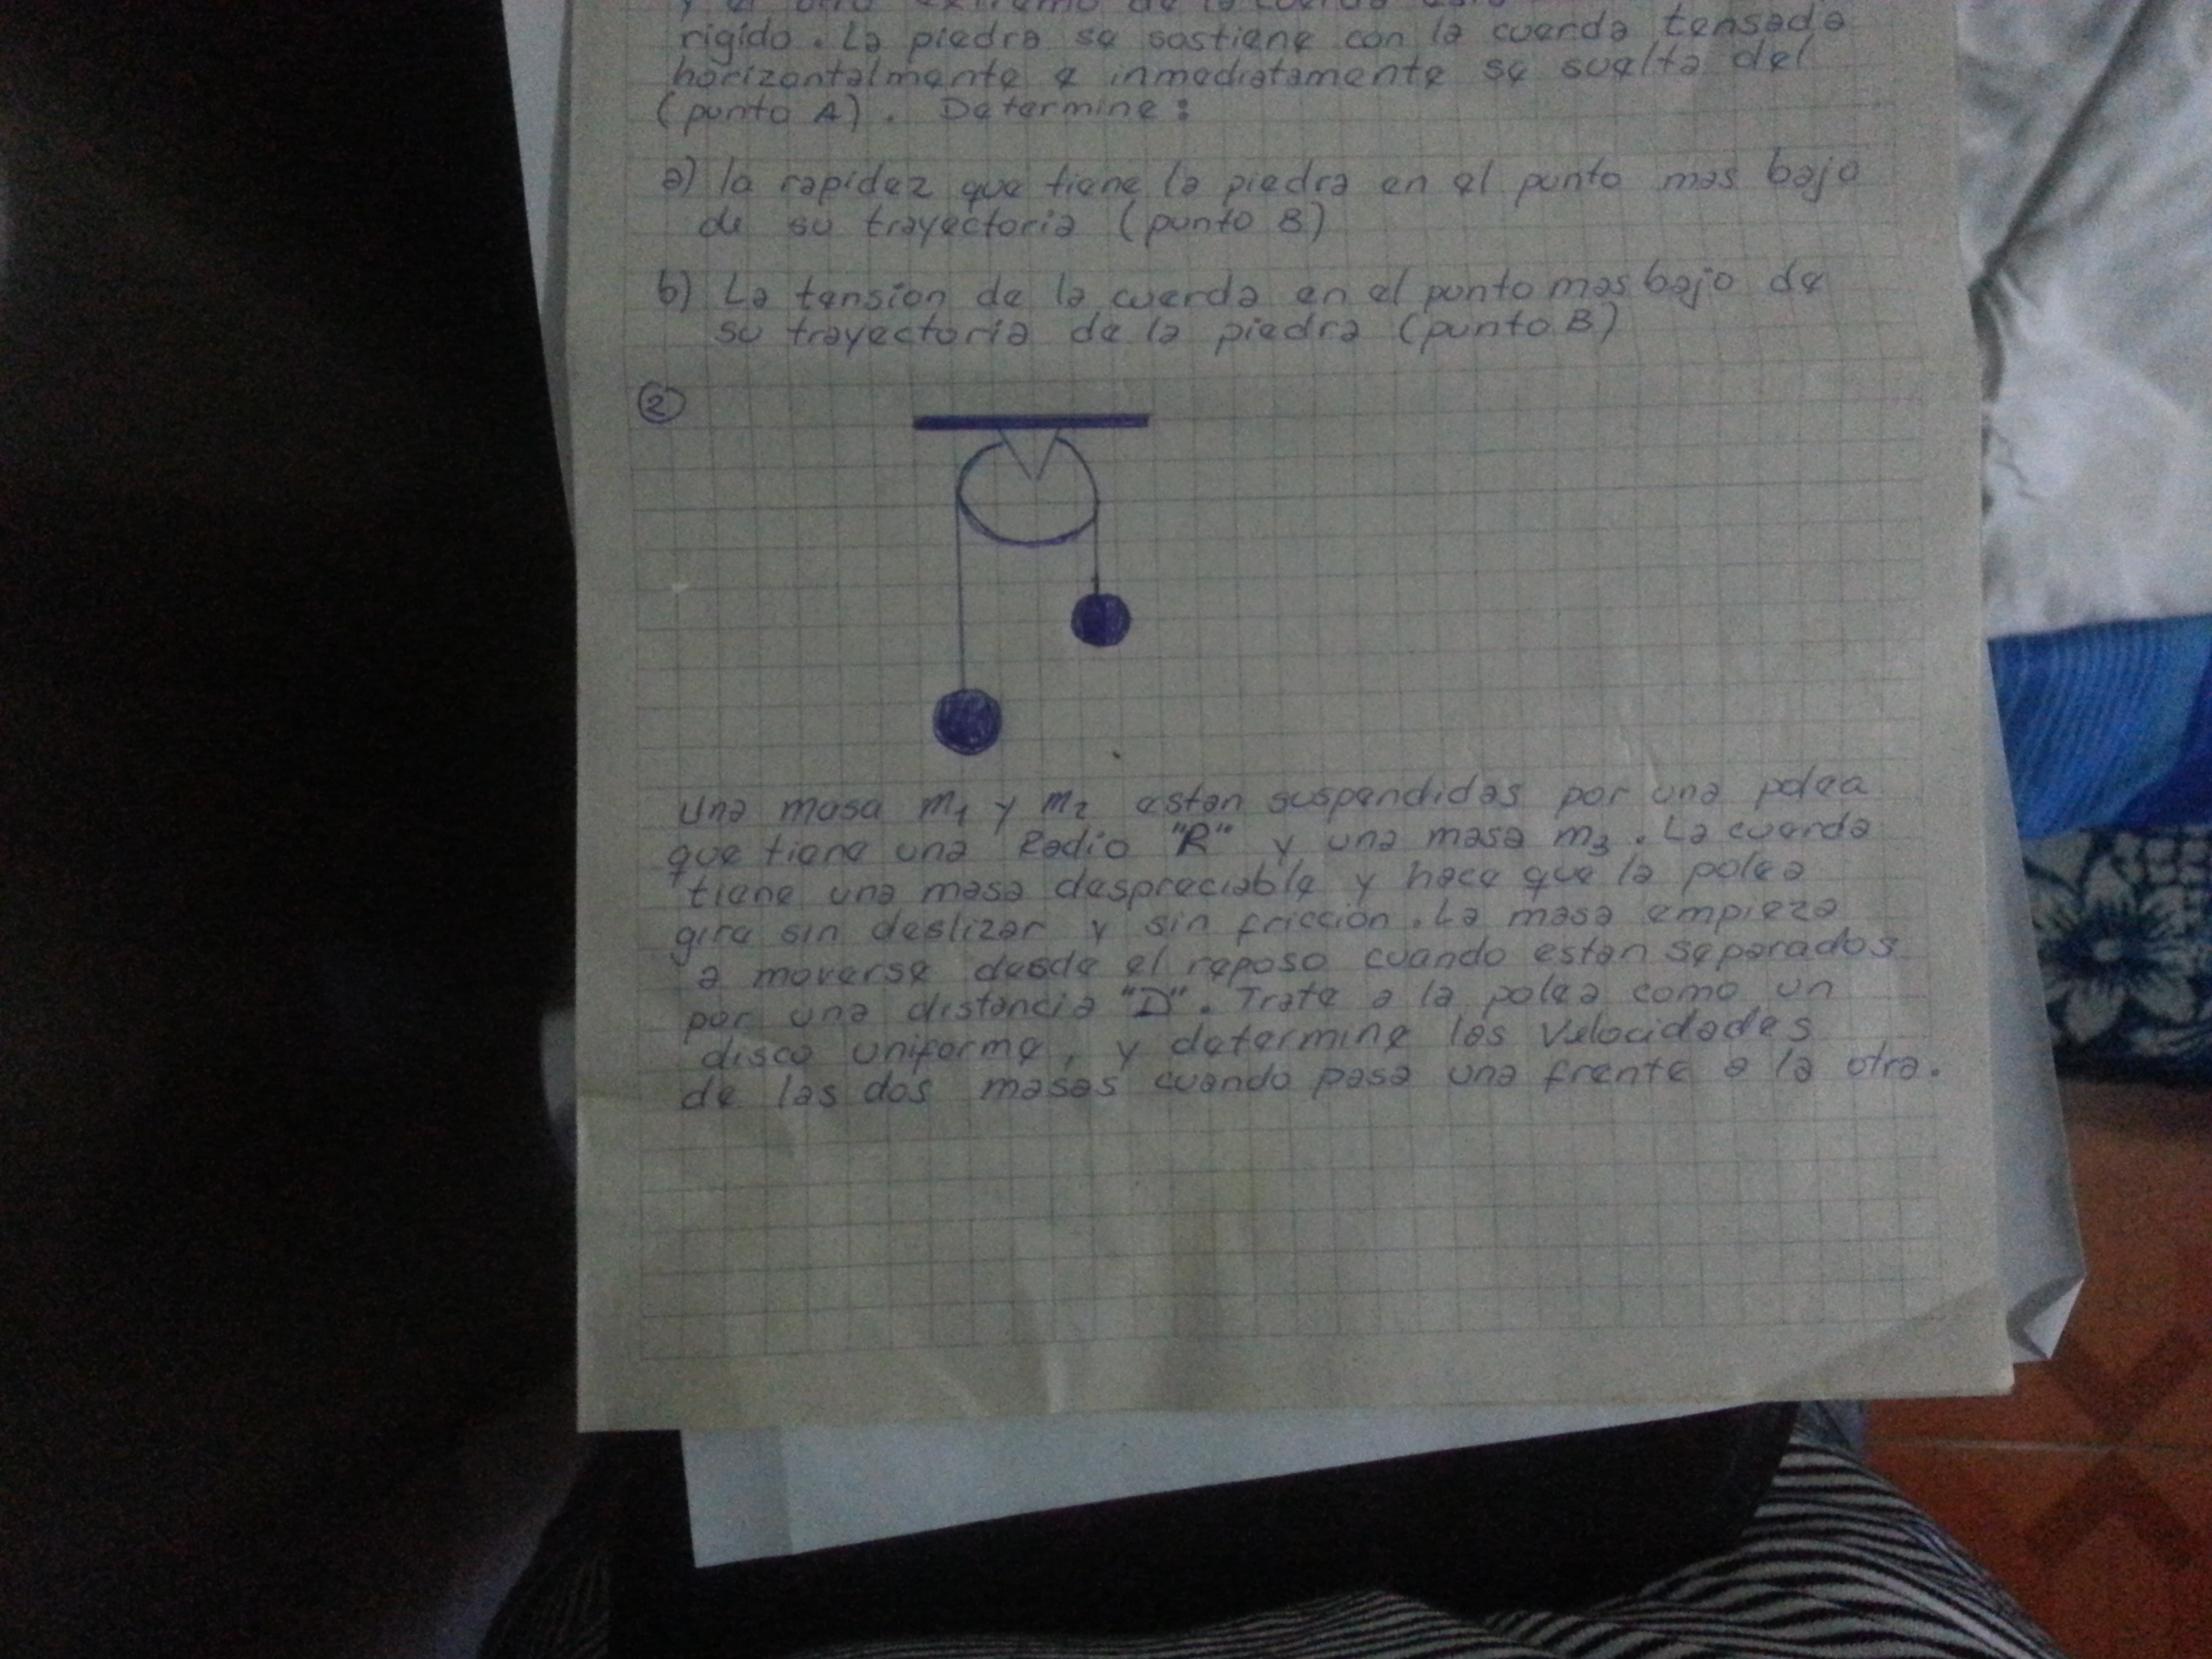 y el otro extremo de la cuerda esta
rigido. La piedra se sostiene con la cuerda tensada
horizontalmente e inmediatamente se suelta del
(punto A). Determine:
a) la rapidez que tiene la piedra en el punto mas bajo
de su trayectoria (punto B)
b) La tension de la cuerda en el punto mas bajo de
su trayectoria de la piedra (punto B)
2
una masa m1 y m2 estan suspendidas por una polea
que tiene una Radio "R" y una masa m3. La cuerda
tiene una masa despreciable y hace que la polea
gire sin deslizar y sin fricción. La masa empieza
a moverse desde el reposo cuando estan separados
por una distancia "D". Trate a la polea como un
disco uniforme, y determine las Velocidades
de las dos masas cuando pasa una frente a la otra.